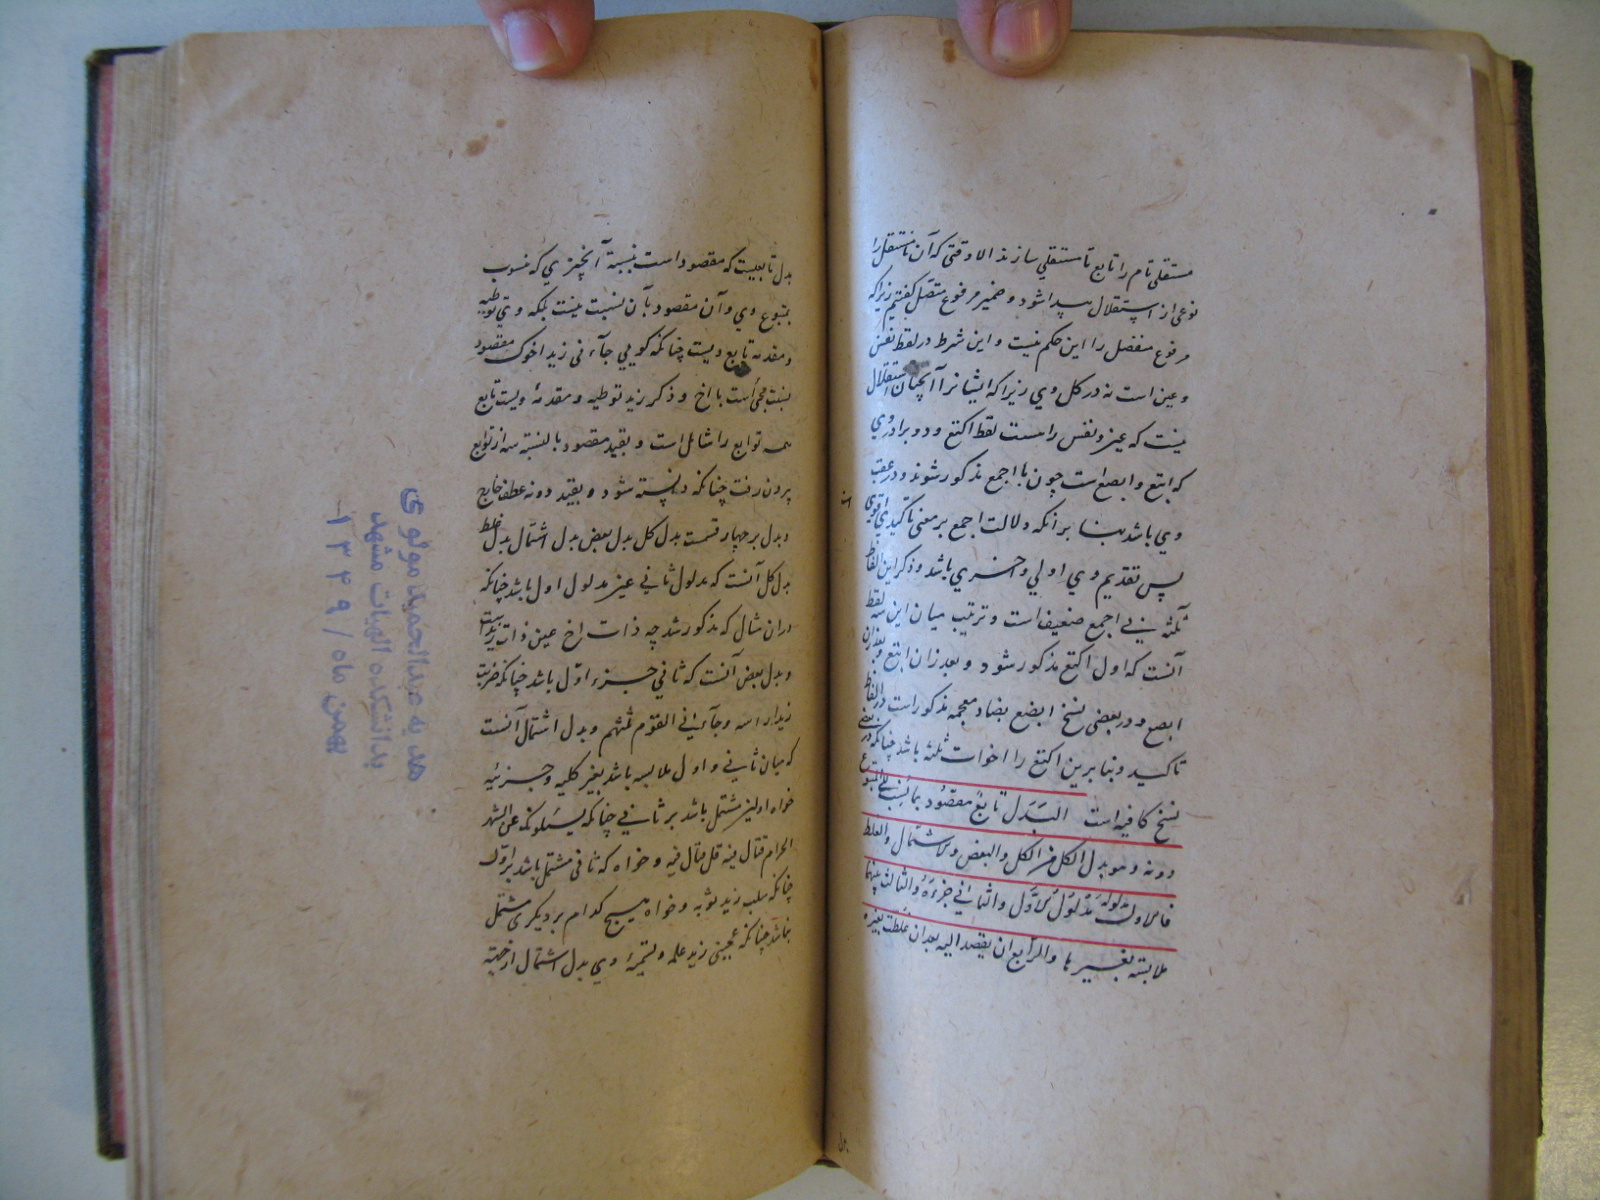 مستقلی تام را تابع نامستقلی سازند الا وقتی که آن نامستقل را
نوعی از استقلال پیدا شود و ضمیر مرفوع متصل گفتیم زیرا که
مرفوع منفصل را این حکم نیست و این شرط در لفظ نفس
و عین است نه در کل و وی زیرا که ایشانرا آنچنان استقلال
نیست که عین و نفس راست لفظ اکتع و دو برادر وی
که ابتع و ابصع است چون با اجمع مذکور شوند در عقب
وی باشد بنا بر آنکه دلالت اجمع بر معنی تاکیدی اقوی
پس تقدیم وی اولی و احری باشد و ذکر این الفاظ
ثلثه بی اجمع ضعیف است و ترتیب میان این سه لفظ
آنست که اول اکتع مذکور شود و بعد زان ابتع و بعد زان
ابصع و در بعضی نسخ ابضع بضاد معجمه مذکور است در الفاظ
تاکید و بنا برین اکتع را اخوات ثلثه باشد چنانکه در بعضی
نسخ کافیه است البدل تابع مقصود بما نسب الی المتبوع
دونه و هو بدل الکل من الکل و البعض و الاشتمال و الغلط
فالاول مدلوله مدلول الاول و الثانی جزءه و الثالث بینهما
ملابسة بغیرها و الرابع ان یقصد الیه بعد ان غلطت بغیره
بدل تابعیست که مقصود است بنسبة آنچیزی که منسوب
بمتبوع وی و آن مقصود بآن نسبت نیست بلکه وی توطیه
و مقدمه تابع ویست چنانکه گویی جاءنی زید اخوک مقصود
بنسبت مجی است با اخ و ذکر زید توطیه و مقدمهٔ ویست تابع
همه توابع را شامل است و بقید مقصود بالنسبته سه از توابع
بیرون رفت چنانکه دانسته شود و بقید دونه عطف خارج
و بدل بر چهار قسمت بدل کل بدل بعض بدل اشتمال بدل غلط
بدل کل آنست که مدلول ثانی عین مدلول اول باشد چنانکه
در ان مثال که مذکور شد چه ذات اخ عین ذات زیدست
و بدل بعض آنست که ثانی جزء اول باشد چنانکه ضربت
زیدا راسه و جاءنی القوم ثلثهم و بدل اشتمال آنست
که میان ثانی و اول ملابسه باشد بغیر کلیه و جزئیه
خواه اول نیز مشتمل باشد بر ثانی چنانکه یسئلونک عن الشهر
الحرام قتال فیه قل قتال فیه و خواه که ثانی مشتمل باشد بر اول
چنانکه سلب زید ثوبه و خواه هیچ کدام بر دیگری مشتمل
نباشد چنانکه عجبنی زید علمه و تسمیهٔ وی بدل اشتمال از جهة
هدیه عبدالحمید مولوی
بدانشکده الهیات مشهد
بهمن ماه / ۱۳۴۹